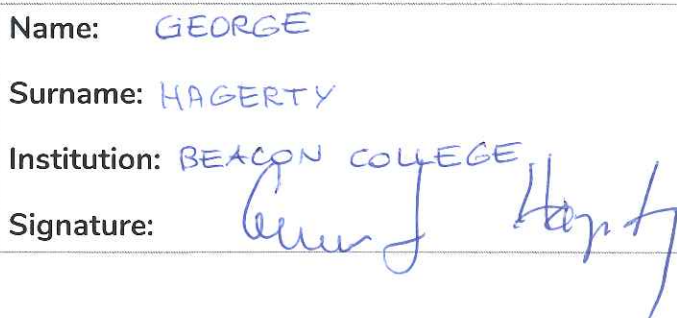 Name: GEORGE
Surname: HAGERTY
Institution: BEACON COLLEGE
Signature: